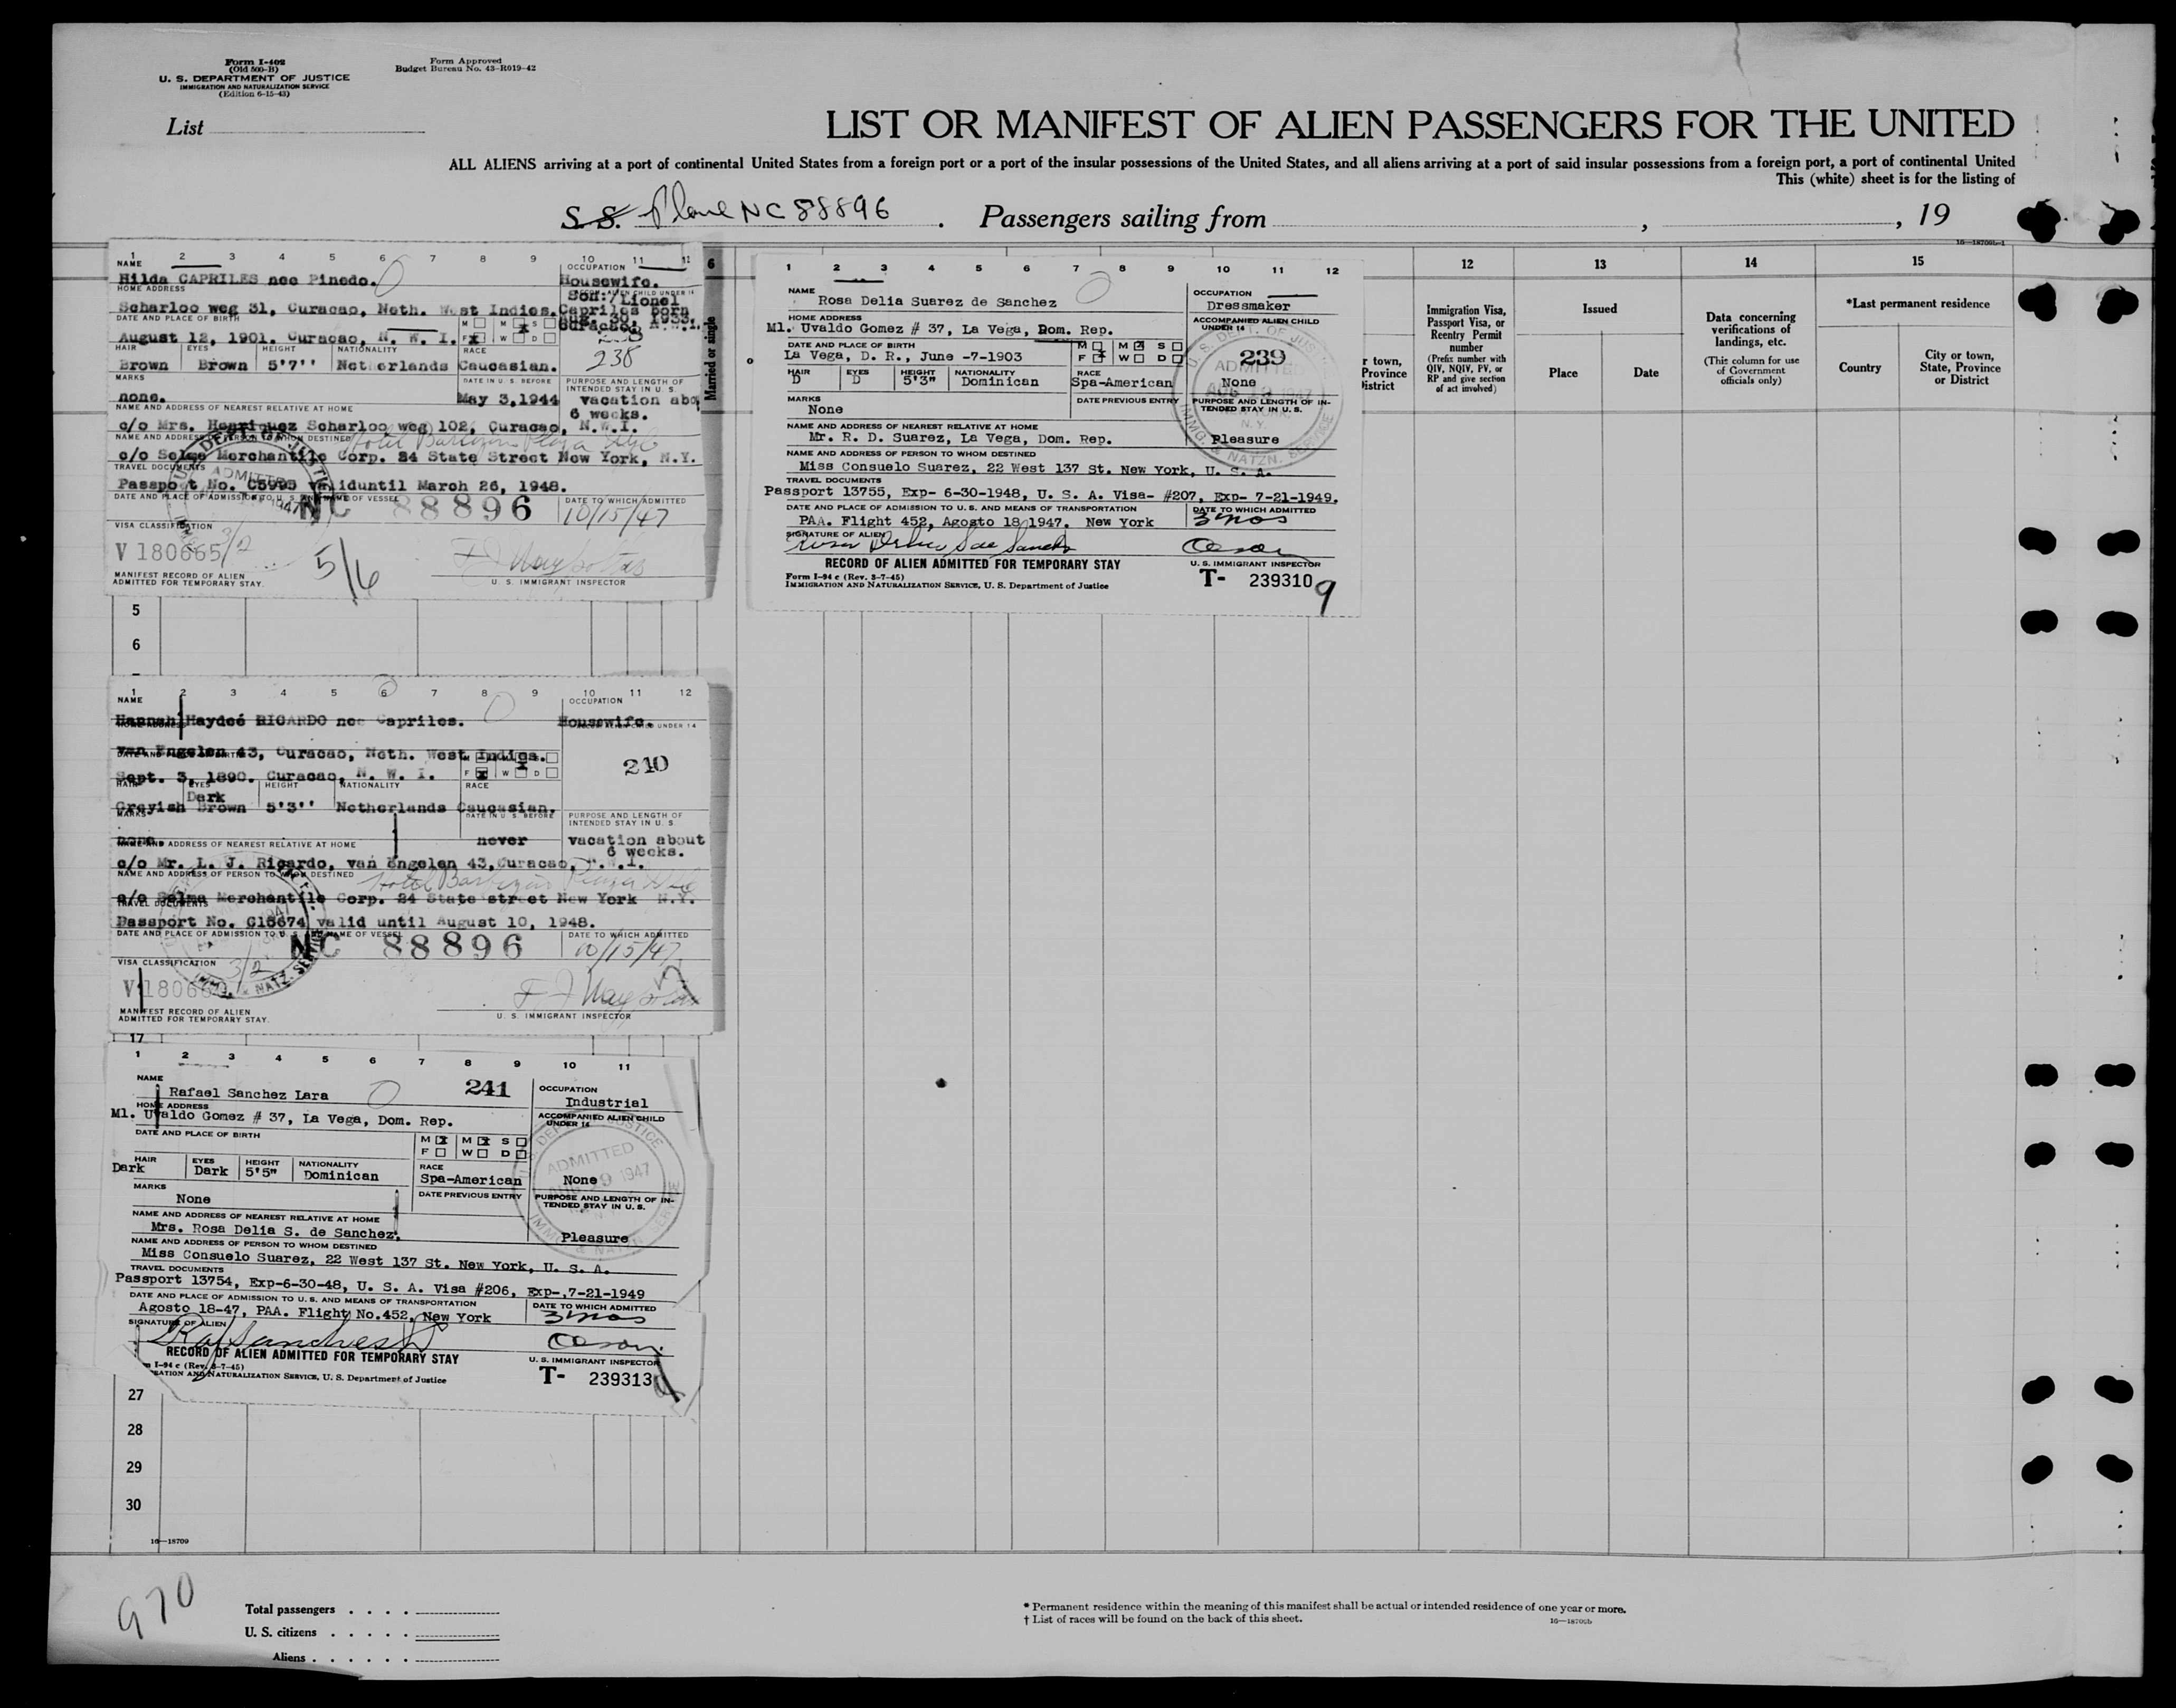 Form I-402
(Old 500-B)
U. S. DEPARTMENT OF JUSTICE
IMMIGRATION AND NATURALIZATION SERVICE
(Edition 6-15-43)
Form Approved
Budget Bureau No. 43-R019-42
List
LIST OR MANIFEST OF ALIEN PASSENGERS FOR THE UNITED
ALL ALIENS arriving at a port of continental United States from a foreign port or a port of the insular possessions of the United States, and all aliens arriving at a port of said insular possessions from a foreign port, a port of continental United
This (white) sheet is for the listing of
S. S. Plane NC 88896 . Passengers sailing from , , 19
1 2 3 4 5 6 7 8 9 10 11 12
NAME OCCUPATION
Hilda CAPRILES nee Pinedo. Housewife.
HOME ADDRESS
Son:/Lionel
Scharloo weg 31, Curacao, Neth. West Indies. Capriles born
Aug. 30, 1933.
DATE AND PLACE OF BIRTH M M S
Curacao, N.W.I.
August 12, 1901. Curacao, N. W. I. F X W D
238
HAIR EYES HEIGHT NATIONALITY RACE
Brown Brown 5'7'' Netherlands Caucasian.
MARKS DATE IN U. S. BEFORE PURPOSE AND LENGTH OF INTENDED STAY IN U. S.
none. May 3,1944 vacation abo
6 weeks.
NAME AND ADDRESS OF NEAREST RELATIVE AT HOME
c/o Mrs. Henriquez Scharloo weg 102, Curacao, N.W.I.
NAME AND ADDRESS OF PERSON TO WHOM DESTINED Hotel Barbizon Plaza
c/o Selma Merchantile Corp. 24 State Street New York, N.Y.
TRAVEL DOCUMENTS
Passport No. C5995 validuntil March 26, 1948.
DATE AND PLACE OF ADMISSION TO U. S. AND NAME OF VESSEL DATE TO WHICH ADMITTED
NC 88896 10/15/47
VISA CLASSIFICATION
3/2
V 180665
5/6
MANIFEST RECORD OF ALIEN
ADMITTED FOR TEMPORARY STAY.
U. S. IMMIGRANT INSPECTOR
6
Married or single
1 2 3 4 5 6 7 8 9 10 11 12
NAME OCCUPATION
Rosa Delia Suarez de Sanchez Dressmaker
HOME ADDRESS ACCOMPANIED ALIEN CHILD UNDER 14
Ml. Uvaldo Gomez # 37, La Vega, Dom. Rep.
DATE AND PLACE OF BIRTH M M S
La Vega, D. R., June -7-1903 F W D
239
HAIR EYES HEIGHT NATIONALITY RACE
D D 5'3" Dominican Spa-American None
MARKS DATE PREVIOUS ENTRY PURPOSE AND LENGTH OF INTENDED STAY IN U. S.
None
NAME AND ADDRESS OF NEAREST RELATIVE AT HOME
Mr. R. D. Suarez, La Vega, Dom. Rep. Pleasure
NAME AND ADDRESS OF PERSON TO WHOM DESTINED
Miss Consuelo Suarez, 22 West 137 St. New York, U. S. A.
TRAVEL DOCUMENTS
Passport 13755, Exp- 6-30-1948, U. S. A. Visa- #207, Exp- 7-21-1949.
DATE AND PLACE OF ADMISSION TO U. S. AND MEANS OF TRANSPORTATION DATE TO WHICH ADMITTED
PAA. Flight 452, Agosto 18 1947. New York 3 mos
SIGNATURE OF ALIEN
RECORD OF ALIEN ADMITTED FOR TEMPORARY STAY
U. S. IMMIGRANT INSPECTOR
Form I-94 c (Rev. 3-7-45)
IMMIGRATION AND NATURALIZATION SERVICE, U. S. Department of Justice
T- 239310
9
r town,
Province
District
12
Immigration Visa,
Passport Visa, or
Reentry Permit
number
(Prefix number with
QIV, NQIV, PV, or
RP and give section
of act involved)
13
Issued
Place Date
14
Data concerning
verifications of
landings, etc.
(This column for use
of Government
officials only)
15
*Last permanent residence
Country
City or town,
State, Province
or District
5
6
1 2 3 4 5 6 7 8 9 10 11 12
NAME OCCUPATION
Hannah Haydeé RICARDO nee Capriles. Housewife.
van Engelen 43, Curacao, Neth. West Indies.
Sept. 3, 1890. Curacao, N. W. I. F X W D
210
HAIR EYES HEIGHT NATIONALITY RACE
Dark
Greyish Brown 5'3'' Netherlands Caucasian.
MARKS DATE IN U. S. BEFORE PURPOSE AND LENGTH OF INTENDED STAY IN U. S.
none never vacation about
6 weeks.
NAME AND ADDRESS OF NEAREST RELATIVE AT HOME
c/o Mr. L. J. Ricardo, van Engelen 43,Curacao, N.W.I.
NAME AND ADDRESS OF PERSON TO WHOM DESTINED Hotel Barbizon Plaza
c/o Selma Merchantile Corp. 24 State street New York N.Y.
TRAVEL DOCUMENTS
Passport No. C18674 valid until August 10, 1948.
DATE AND PLACE OF ADMISSION TO U. S. AND NAME OF VESSEL DATE TO WHICH ADMITTED
NC 88896 10/15/47
VISA CLASSIFICATION
3/2
MANIFEST RECORD OF ALIEN
ADMITTED FOR TEMPORARY STAY.
U. S. IMMIGRANT INSPECTOR
17
1 2 3 4 5 6 7 8 9 10 11
NAME 241 OCCUPATION
Rafael Sanchez Lara Industrial
HOME ADDRESS ACCOMPANIED ALIEN CHILD UNDER 14
Ml. Uvaldo Gomez # 37, La Vega, Dom. Rep.
DATE AND PLACE OF BIRTH M M S
F W D
ADMITTED
HAIR EYES HEIGHT NATIONALITY RACE
Dark Dark 5'5" Dominican Spa-American None
MARKS DATE PREVIOUS ENTRY PURPOSE AND LENGTH OF INTENDED STAY IN U. S.
None
NAME AND ADDRESS OF NEAREST RELATIVE AT HOME
Mrs. Rosa Delia S. de Sanchez. Pleasure
NAME AND ADDRESS OF PERSON TO WHOM DESTINED
Miss Consuelo Suarez, 22 West 137 St. New York, U. S. A.
TRAVEL DOCUMENTS
Passport 13754, Exp-6-30-48, U. S. A. Visa #206, Exp-,7-21-1949
DATE AND PLACE OF ADMISSION TO U. S. AND MEANS OF TRANSPORTATION DATE TO WHICH ADMITTED
Agosto 18-47, PAA. Flight No.452, New York 3 mos
SIGNATURE OF ALIEN
RECORD OF ALIEN ADMITTED FOR TEMPORARY STAY
U. S. IMMIGRANT INSPECTOR
I-94 c (Rev. 3-7-45)
NATURALIZATION SERVICE, U. S. Department of Justice
T- 239313
27
28
29
30
16—18709
970
Total passengers
U. S. citizens
Aliens
* Permanent residence within the meaning of this manifest shall be actual or intended residence of one year or more.
† List of races will be found on the back of this sheet.